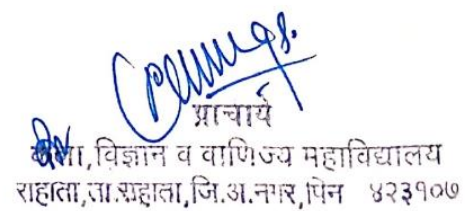 प्राचार्य
कला,विज्ञान व वाणिज्य महाविद्यालय
राहाता,ता.राहाता,जि.अ.नगर,पिन ४२३१०७